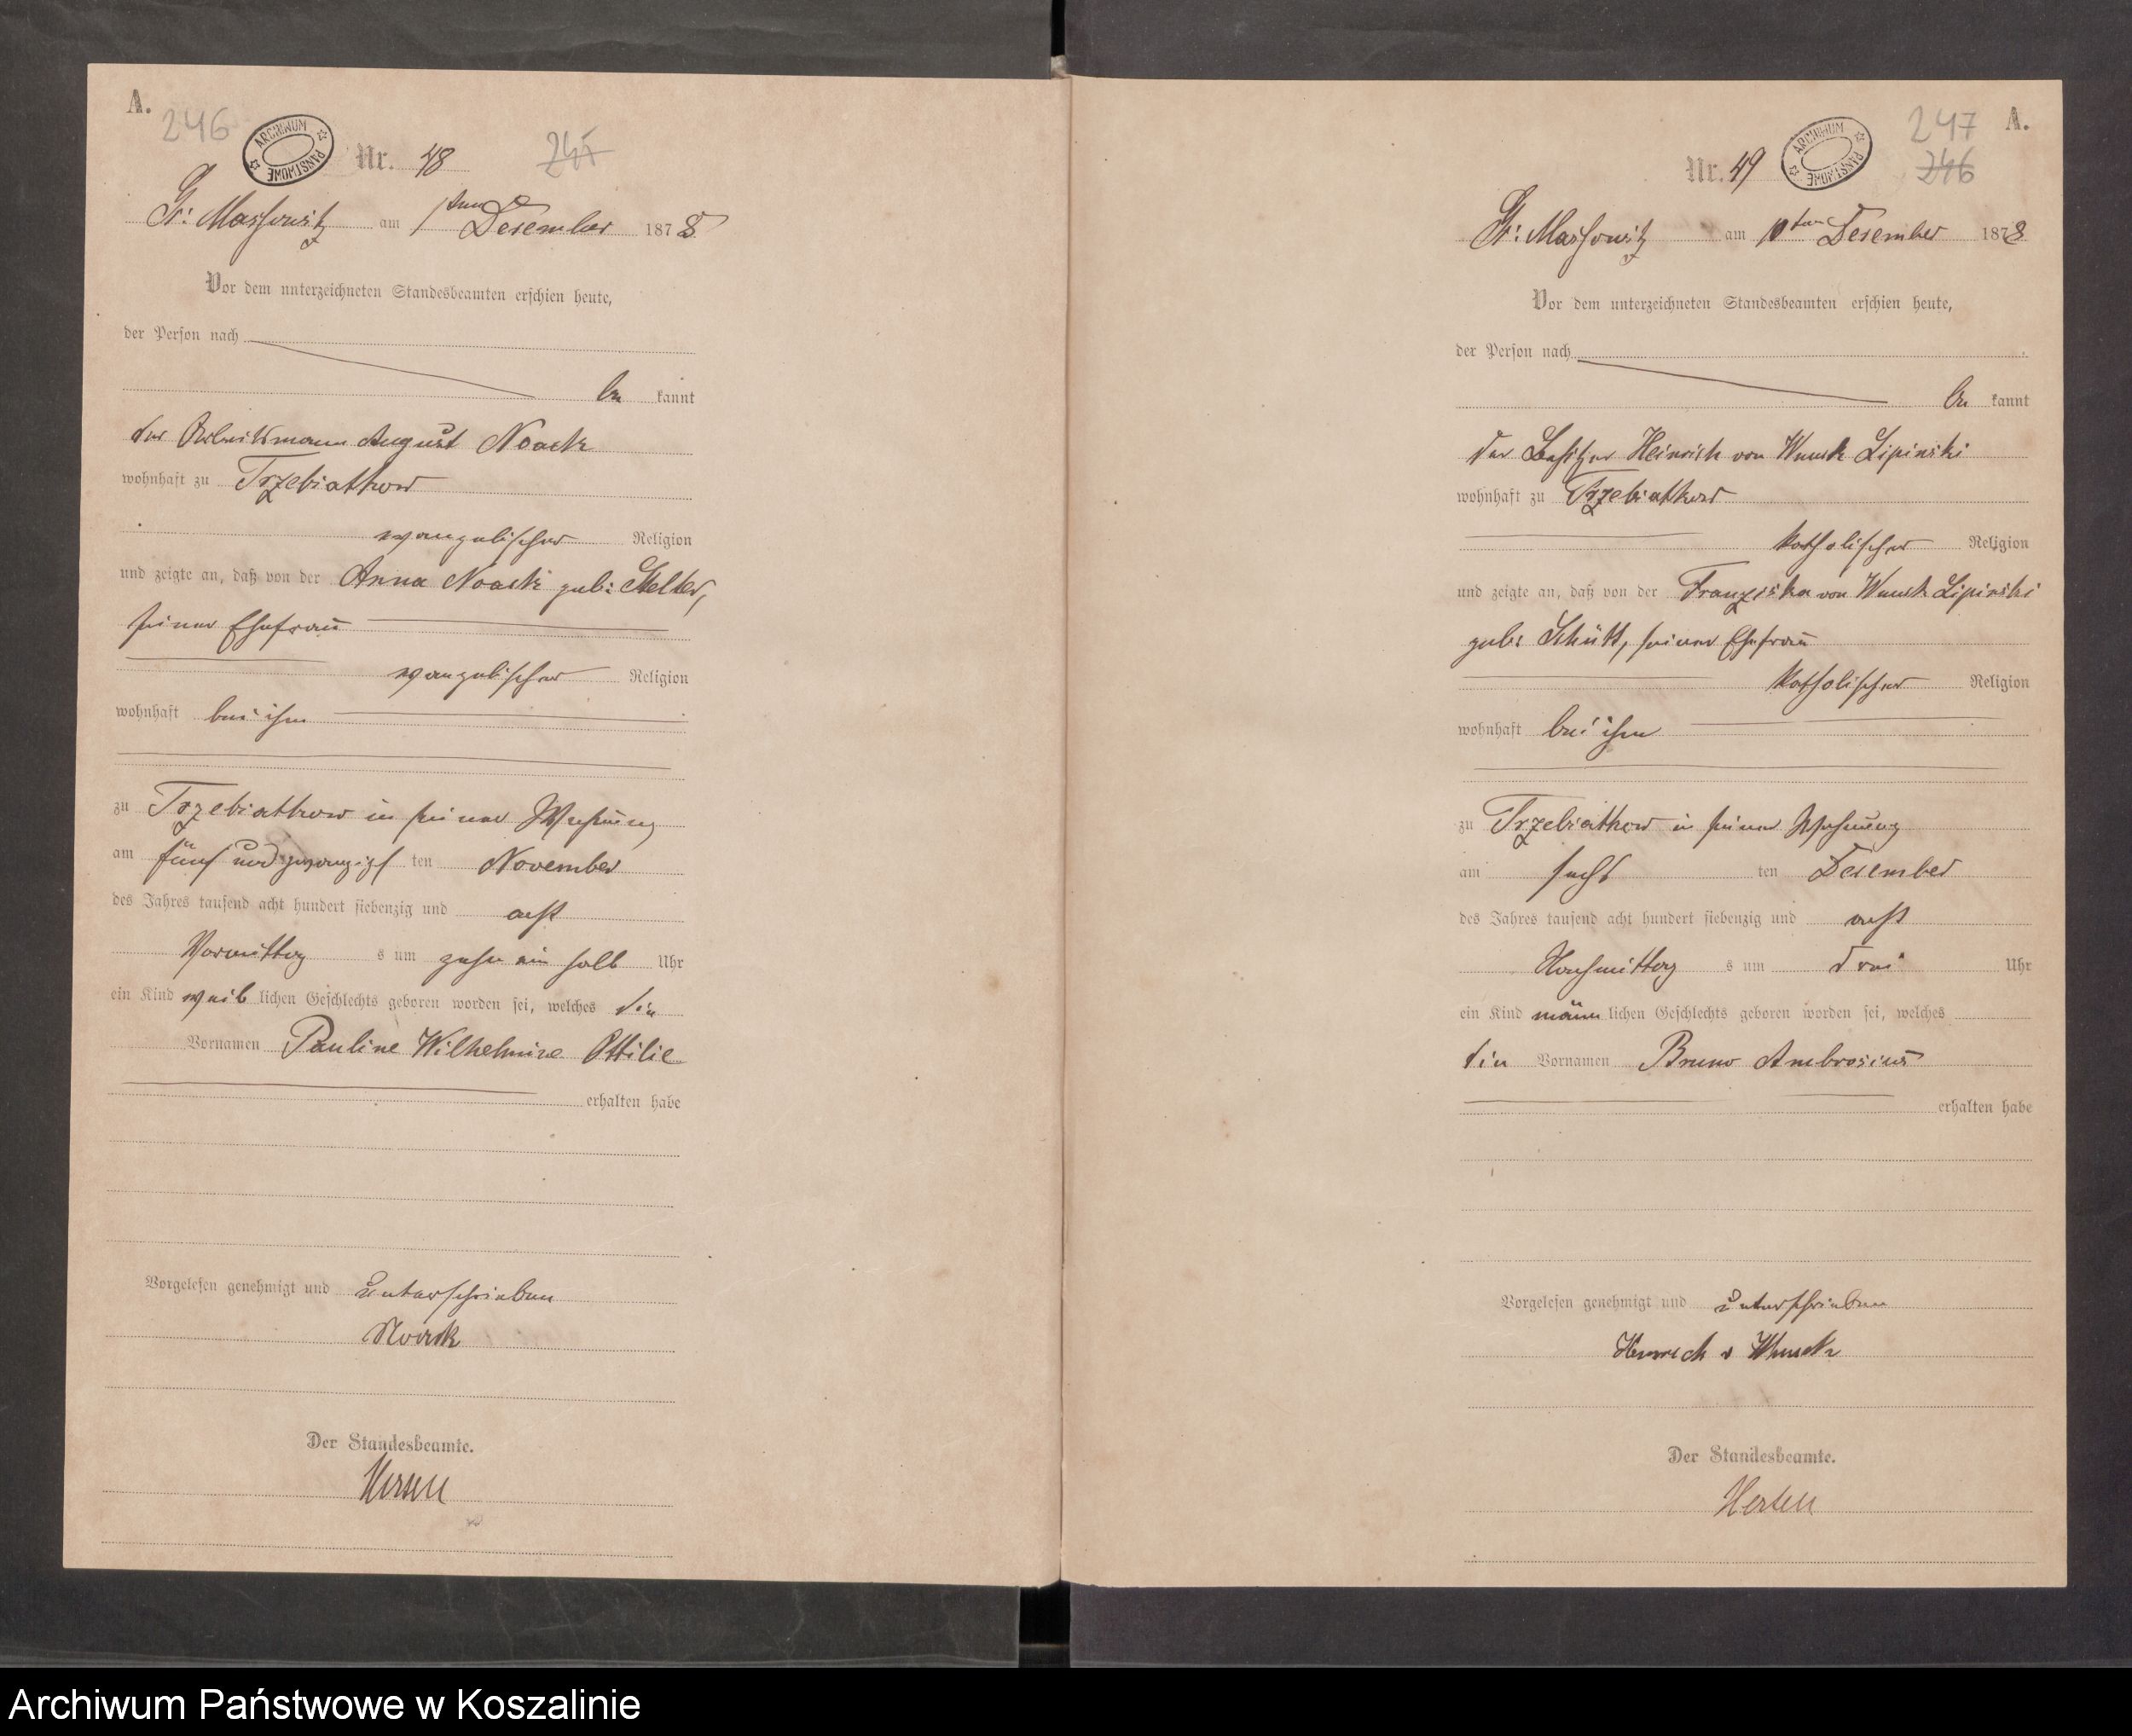 A.
246
ARCHIWUM PAŃSTWOWE
Nr. 48
245
Gr: Massowitz am 1ten Dezember 1878
Vor dem unterzeichneten Standesbeamten erschien heute,
der Person nach
be kannt
der Arbeitsmann August Noack
wohnhaft zu Trzebiatkow
evangelischer Religion
und zeigte an, daß von der Anna Noack geb: Stelter,
seiner Ehefrau
evangelischer Religion
wohnhaft bei ihm
zu Trzebiatkow in seiner Wohnung
am fünf und zwanzigs ten November
des Jahres tausend acht hundert siebenzig und acht
Vormittag s um zehn ein halb Uhr
ein Kind weib lichen Geschlechts geboren worden sei, welches die
Vornamen Pauline Wilhelmine Ottilie
erhalten habe
Vorgelesen genehmigt und unterschrieben
Noack
Der Standesbeamte.
247 A.
ARCHIWUM PAŃSTWOWE
Nr. 49
246
Gr: Massowitz am 10ten Dezember 1878
Vor dem unterzeichneten Standesbeamten erschien heute,
der Person nach
be kannt
der Besitzer Heinrich von Wnuck Lipinski
wohnhaft zu Trzebiatkow
katholischer Religion
und zeigte an, daß von der Franziska von Wnuck Lipinski
geb: Schütt, seiner Ehefrau
katholischer Religion
wohnhaft bei ihm
zu Trzebiatkow in seiner Wohnung
am sechs ten Dezember
des Jahres tausend acht hundert siebenzig und acht
Nachmittag s um drei Uhr
ein Kind männ lichen Geschlechts geboren worden sei, welches
die Vornamen Bruno Ambrosius
erhalten habe
Vorgelesen genehmigt und unterschrieben
Heinrich v Wnuck
Der Standesbeamte.
Archiwum Państwowe w Koszalinie